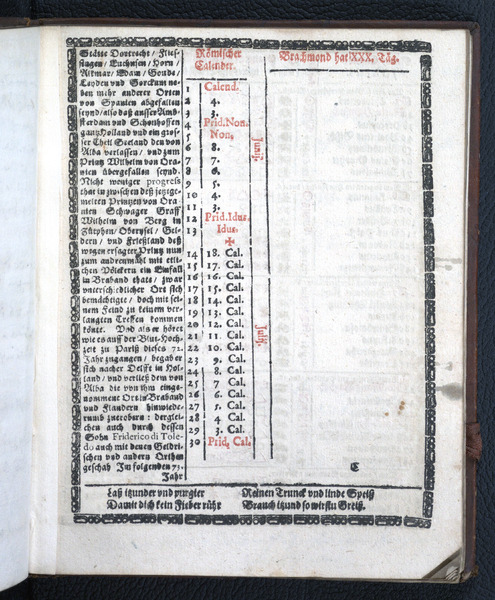 Stätte Dortrecht / Flies-
singen / Enchusen / Horn /
Alkmar / Edam / Goude /
Leyden vnd Gorckum ne-
ben mehr anderer Orten
von Spanien abgefallen
seynd / also daß ausser Amb-
sterdam vnd Schonhoffen
gantz Holland vnd ein gros-
ser Theil Seeland den von
Alba verlassen / vnd zum
Printz Wilhelm von Ora-
nien übergefallen seynd.
Nicht weniger progress
that in zwischen deß jetzge-
melten Printzen von Ora-
nien Schwager Graff
Wilhelm von Berg in
Zütphen / Oberyssel / Gel-
dern / vnd Frießland deß
wegen ersagter Printz nun
zum andernmahl mit etli-
chen Völckern ein Einfall
in Braband thate / zwar
vnterschiedlicher Ort sich
bemächtigte / doch mit sei-
nem Feind zu keinem ver-
langten Treffen kommen
könte. Vnd als er höret
wie es auff der Blut-Hoch-
zeit zu Pariß dieses 72.
Jahr zugangen / begab er
sich nacher Delfft in Hol-
land / vnd verließ dem von
Alba die von ihm einge-
nommene Ort in Braband
vnd Flandern hinwiede-
rumb zuerobern : derglei-
chen auch durch dessen
Sohn Friderico di Tole-
do auch mit denen Geldri-
schen vnd andern Orthen
geschah Im folgenden 73.
Jahr
Römischer
Calender.
1 Calend.
2 4.
3 3.
4 Prid. Non.
5 Non.
6 8.
7 7.
8 6.
9 5.
10 4.
11 3.
12 Prid. Idus.
13 Idus.
✠
14 18. Cal.
15 17. Cal.
16 16. Cal.
17 15. Cal.
18 14. Cal.
19 13. Cal.
20 12. Cal.
21 11. Cal.
22 10. Cal.
23 9. Cal.
24 8. Cal.
25 7 Cal.
26 6. Cal.
27 5. Cal.
28 4 Cal.
29 3. Cal.
30 Prid, Cal.
Junij.
Julij.
Brachmond hat XXX. Täg.
C
Laß itzunder vnd purgier
Damit dich kein Fieber rühr
Reinen Trunck vnd linde Speiß
Brauch itzund so wirstu Greiß.